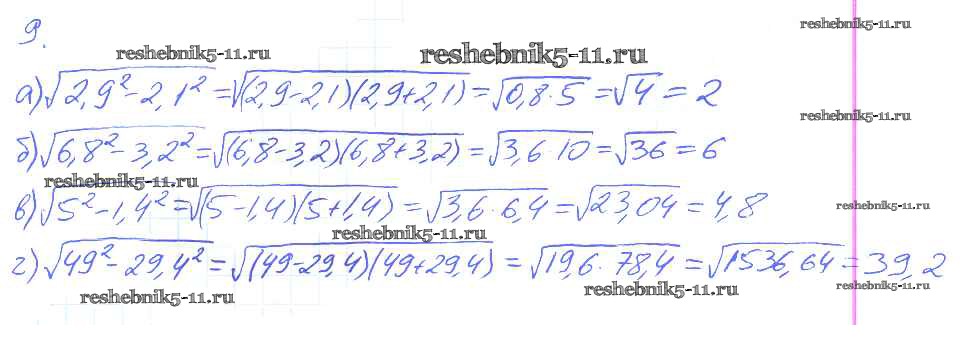 9.
reshebnik5-11.ru
reshebnik5-11.ru
reshebnik5-11.ru
а) √(2,9² - 2,1²) = √((2,9 - 2,1)(2,9 + 2,1)) = √(0,8 · 5) = √4 = 2
reshebnik5-11.ru
б) √(6,8² - 3,2²) = √((6,8 - 3,2)(6,8 + 3,2)) = √(3,6 · 10) = √36 = 6
reshebnik5-11.ru
в) √(5² - 1,4²) = √((5 - 1,4)(5 + 1,4)) = √(3,6 · 6,4) = √23,04 = 4,8
reshebnik5-11.ru
reshebnik5-11.ru
г) √(49² - 29,4²) = √((49 - 29,4)(49 + 29,4)) = √(19,6 · 78,4) = √1536,64 = 39,2
reshebnik5-11.ru
reshebnik5-11.ru
reshebnik5-11.ru